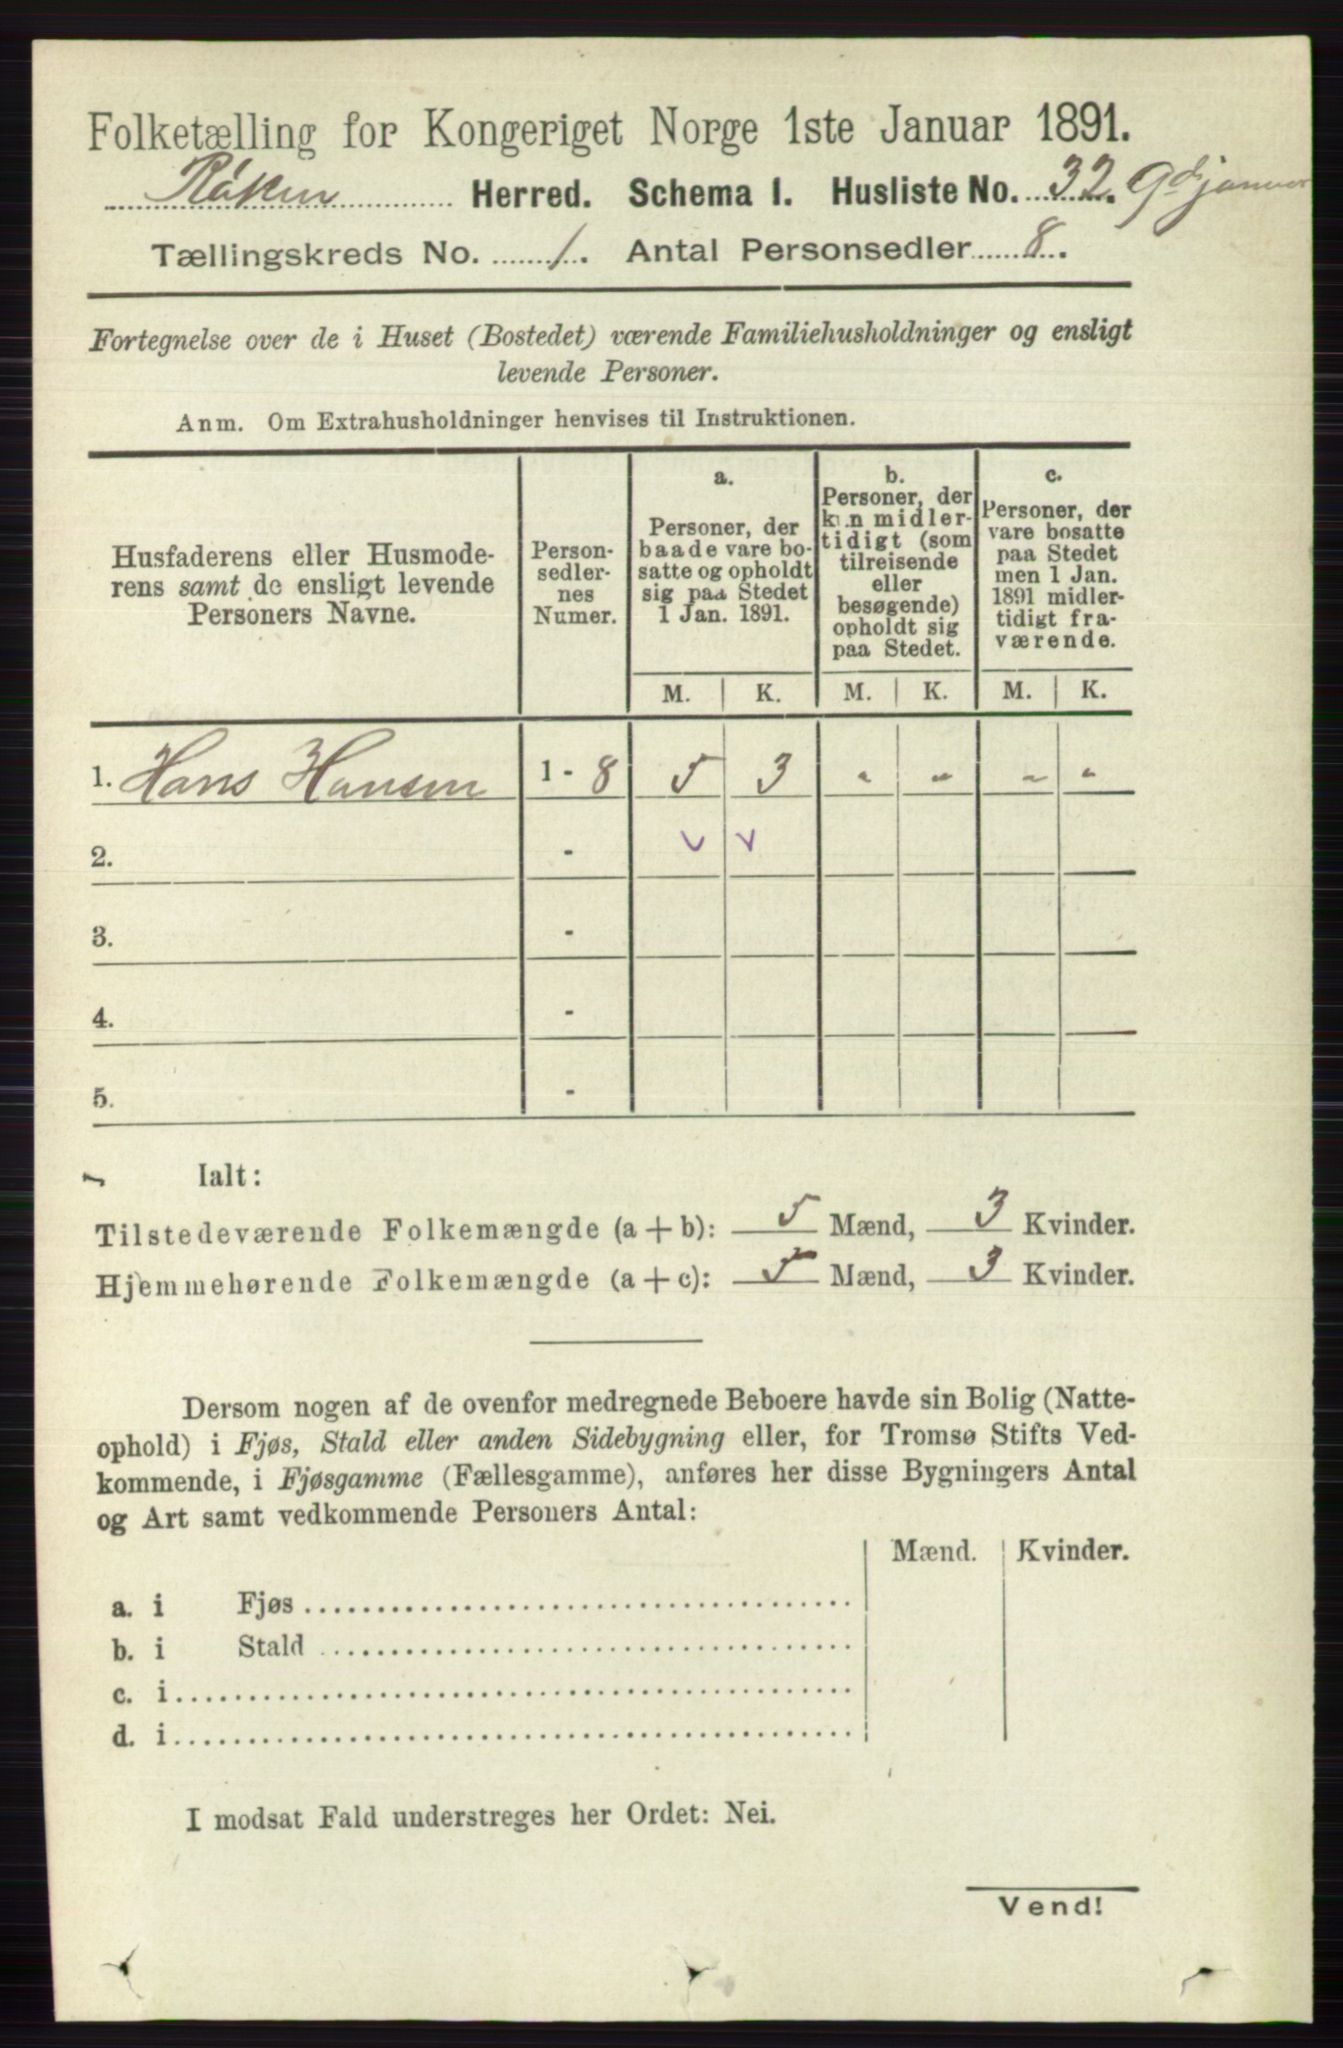 Folketælling for Kongeriget Norge 1ste Januar 1891.
Røken Herred. Schema I. Husliste No. 32. 9d januar
Tællingskreds No. 1. Antal Personsedler 8.
Fortegnelse over de i Huset (Bostedet) værende Familiehusholdninger og ensligt
levende Personer.
Anm. Om Extrahusholdninger henvises til Instruktionen.
Husfaderens eller Husmode-
rens samt de ensligt levende
Personers Navne.
Person-
sedler-
nes
Numer.
a.
Personer, der
baade vare bo-
satte og opholdt
sig paa Stedet
1 Jan. 1891.
b.
Personer, der
kun midler-
tidigt (som
tilreisende
eller
besøgende)
opholdt sig
paa Stedet.
c.
Personer, der
vare bosatte
paa Stedet
men 1 Jan.
1891 midler-
tidigt fra-
værende.
M. K. M. K. M. K.
1. Hans Hansen 1 - 8 5 3 " " " "
2. - v v
3. -
4. -
5. -
Ialt:
Tilstedeværende Folkemængde (a + b): 5 Mænd, 3 Kvinder.
Hjemmehørende Folkemængde (a + c): 5 Mænd, 3 Kvinder.
Dersom nogen af de ovenfor medregnede Beboere havde sin Bolig (Natte-
ophold) i Fjøs, Stald eller anden Sidebygning eller, for Tromsø Stifts Ved-
kommende, i Fjøsgamme (Fællesgamme), anføres her disse Bygningers Antal
og Art samt vedkommende Personers Antal:
Mænd. Kvinder.
a. i Fjøs
b. i Stald
c. i
d. i
I modsat Fald understreges her Ordet: Nei.
Vend!